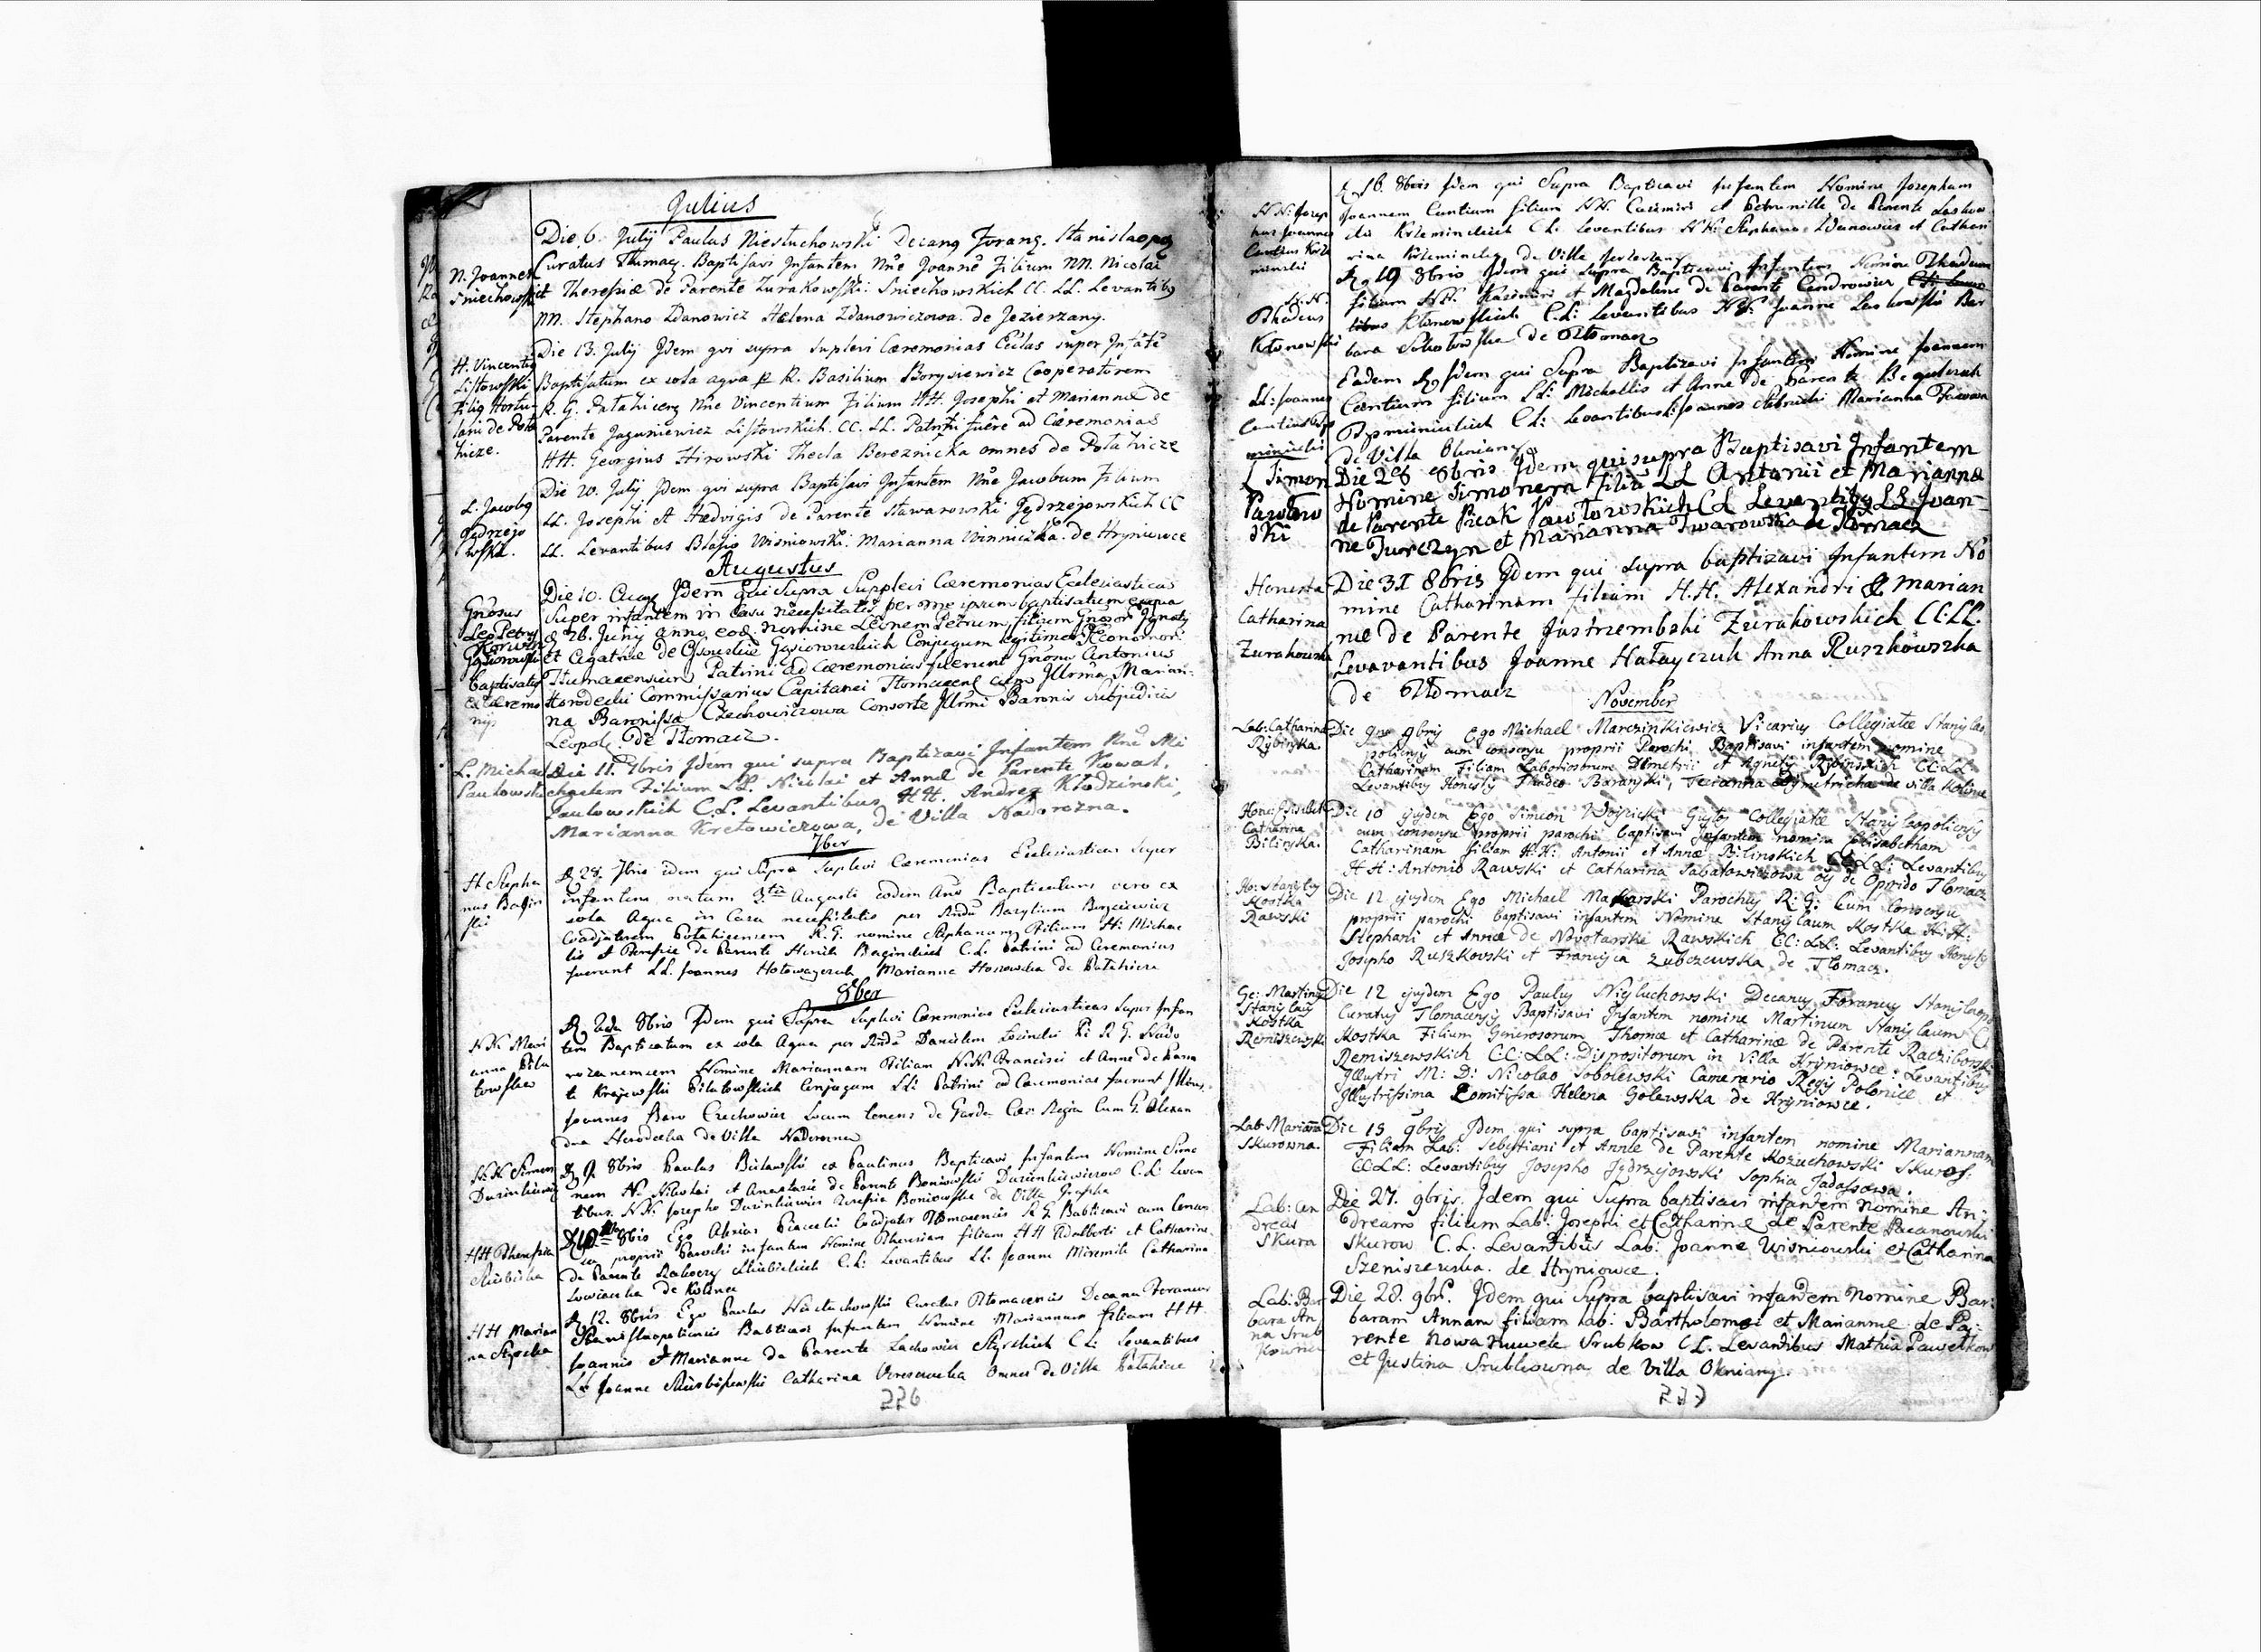 Julius
N. Joannes Sniechowski
Die 6. Julij Paulus Niesłuchowski Decang Forang. Stanislaopog
Curatus Tłumacz. Baptisavi Infantem Nñe Joannē Filium NN. Nicolai
et Theresiæ de Parente Zurakowski Sniechowskich CC. LL. Levantibg
NN. Stephano Zdanowicz Helena Zdanowiczowa. de Jezierzany.
H. Vincentig Listowski Filig Hortulani de Potahicze.
Die 13. Julij Jdem qui supra suplevi Cæremonias Ecclas super Infātē
Baptisatum ex sola aqua p R. Basilium Borysiewicz Cooperatorem
R. G. Patahicens Nñe Vincentium Filium HH. Josephi et Mariannæ de
Parente Jaguniewicz Listowskich. CC. LL. Patrini fuêre ad Cæremonias
HH. Georgius Hirowski Thecla Bereznicka omnes de Potahicze
L. Jacobg Jędrzejowski.
Die 20. Julij Jdem qui supra Baptisavi Infantem Nñe Jacobum Filium
LL. Josephi et Hædvigis de Parente Stawarowski Jędrzejowskich CC
LL. Levantibus Blasio Wisniowski. Marianna Winniczka. de Hryniowce
Augustus
Gnosus Leo Petrg Korwin Gąsiorowski baptisatg ex Cæremonijs
Die 10. Aug Jdem qui Supra Supplevi Cæremonias Ecclesiasticas
Super infantem in Casu necessitatis per me ipsum baptisatum ex aqua
d. 26. Junij anno eod. nomine Leonem Petrum, filium Gnosor Ignatij
et Agathæ de Gąsiorowskich Conjugum legitimor Œconomor
Tłumacensium Patrini ad Cæremonias fuerunt Gnosus Antonius
Horodecki Commissarius Capitanei Tłomacens cum Jllrma Marian-
na Baronissa Czechowiczowa Consorte Jllrmi Baronis Subjudicis
Leopol: de Tłomacz.
L. Michael Pawłowski
Die 11. 7bris Jdem qui supra Baptizavi Infantem Nñe Mi
chaelem Filium LL. Nicolai et Annæ de Parente Kowal,
Pawłowskich C.L. Levantibus, HH. Andrea Kłodzinski,
Marianna Kretowiczowa, de Villa Nadorozna.
7ber
H. Stephanus Baginski
D. 28. 7bris idem qui Supra Suplevi Cæremonias Ecclesiasticas Super
infantem natum 3tia Augusti eodem Ano Baptisatum vero ex
sola Aqua in Casu necessitatis per Rndū Bazylium Boryciewicz
Coadjutorem Potahicensem R. G. nomine Stephanum Filium H: Michae
lis et Theresiæ de Parente Baginskich C.L. Patrini ad Ceremonias
fuerunt LL. Joannes Marianna de Potahicze
8ber
NN. Marianna Piłatowska
D 2da 8bris Jdem qui Supra Suplevi Cæremonias Ecclesiasticas Super Infan
tem Baptisatum ex sola Aqua per Rndū Danielem R. G. Nado
roznensem Nomine Mariannam Filiam N.N. Francisci et Anne de Paren
te Krajewski Piłatowskich Conjugum LL. Patrini ad Cæremonias fuerunt Jllmus
Joannes Baro Czechowicz Locum tenens de Garda Cæs: Regia Cum G. Alexan
dra Horodecka de Villa Nadorozna
N.N. Simon Duzinkiewicz
D 9. 8bris Paulus Biclawski ex Paulinus Baptizavi Infantem Nomine Simo
nem N. Nikolai et Anastasie de Parente Boniowski Duzinkiewiczow C.L. Levan
tibus. NN. Josepho Duzinkiewicz Zuzefia Boniowska de Villa Gruszka
HH Theresia Skibicka
D 10ma 8bris Ego Coadjutor Tłomacensis R G. Babtizavi cum Consen
su proprii Parochi infantem Nomine Theresiam filiam HH Adalberti et Catharine
de Parente Skibickich C.L. Levantibus LL. Joanne Catharina
de Kolince
HH Marianna Styrska
D 12. 8bris Ego Paulus Niesłuchowski Curatus Tłomacensis Decanus Foraneus
Stanislaopoliensis Babtizavi Infantem Nomine Mariannam filiam HH.
Joannis et Marianne de Parente Lachowicz Styrskich C.L. Levantibus
LL Joanne Catharina Omnes de Villa Potahicze
226
NN: Josephus Joannes Cantius Krzeminski
D 16. 8bris Jdem qui Supra Baptizavi Infantem Nomine Josephum
Joannem Cantium filium NN. Casimiri et Petronille de Parente Laskow
ski Krzeminskich C.L. Levantibus NN: Stephano Zdanowicz et Cathari
rina Krzeminska de Villa Jezierzany
N.N. Thadeus Kłonowski
D 19 8bris Jdem qui Supra Baptizavi Infantem Nomine Thadeum
filium NN. Kazimiri et Magdalene de Parente Cendrowicz
Kłonowskich C.L: Levantibus NN: Joanne Laskowski Bar
bara Sokołowska de Tłomacz
LL: Joannes Cantius
Eadem D Jdem qui Supra Baptizavi Infantem Nomine Joannem
Cantium filium LL: Michaelis et Anne de Parente
C.L: Levantibus L: Joannes Marianna
de Villa Okniany
L Simon Pawłowski
Die 28 8bris Jdem qui supra Baptisavi Infantem
Nomine Simonem Filiū LL Antonii et Mariannæ
de Parente Picak Pawłowskich CL Levantibg LL Joan-
ne Turczyn et Marianna Twarowska de Tłomacz
Honesta Catharina Zurakowska
Die 31 8bris Jdem qui supra baptizavi Infantem No
mine Catharinam filiam H.H. Alexandri & Marian
næ de Parente Jastrzembski Zurakowskich CC.LL.
Levavantibus Joanne Hałayczuk Anna Ruszkowszka
de Tłomacz
November
Lab: Catharina Rybinska
Die 9no 9bris Ego Michael Marczinkiewicz Vicarius Collegiatæ Stanislao
poliensis cum consensu proprii Parochi Baptisavi infantem nomine
Catharinam Filiam Laboriosorum Dimetrii et Agnetis Rybinskich CC:LL:
Levantibus Honestis Thadeo Baranski, Dymitricha de villa Kolince
Hone: Elisabeth Catharina Bilinska.
Die 10 ejusdem Ego Simeon Woyzicki Collegiatæ Stanislaopoliensis
cum consensu proprii parochi baptisavi Infantem nomine Elisabetham
Catharinam filiam H:H: Antonii et Annæ Bilinskich CC:LL: Levantibus
HH: Antonio Rawski et Catharina Sabatowiczowa de Oppido Tłomacz
Ho: Stanislaus Kostka Rawski
Die 12 ejusdem Ego Michael Makarski Parochus R: G: Cum Consensu
proprii parochi baptisavi infantem Nomine Stanislaum Kostka H:H:
Stephani et Annæ de Novotarski Rawskich CC:LL: Levantibus Honestis
Josepho Ruszkovski et Francisca Zubczewska de Tłomacz.
Ge: Martinus Stanislaus Kostka Remiszewski
Die 12 ejusdem Ego Paulus Niesłuchowski Decanus Foraneus Stanislaopo
Curatus Tlomacensis Baptisavi Infantem nomine Martinum Stanislaum
Kostka Filium Generosorum Thomæ et Catharinæ de Parente Raciborski
Remiszewskich CC:LL: Dispositorum in Villa Hryniowce: Levantibus
Jllustri M: D: Nicolao Sobolewski Camerario Regis Poloniæ et
Jllustrissima Comitissa Helena Golewska de Hryniowce.
Lab: Marianna Skurowna.
Die 15 9bris Jdem qui supra baptisavi infantem nomine Mariannam
Filiam Lab: Sebestiani et Annæ de Parente Kozuchowski Skurof:
CC:LL: Levantibus Josepho Jędrzejowski Sophia Jadassowa.
Lab: Andreas Skura
Die 27. 9bris. Jdem qui Supra baptisavi infantem nomine An-
dream filium Lab: Josephi et Catharinæ de Parente Pacanowski
Skurow C.L. Levantibus Lab: Joanne Wisniowski et Catharina
Szeniszewska. de Hryniowce.
Lab: Barbara Anna Srubkowna
Die 28. 9bs. Jdem qui Supra baptisavi infantem nomine Bar-
baram Annam filiam Lab: Bartholomei et Mariannæ de Pa-
rente Srubkow CL. Levantibus Mathia Pawełkow
et Justina Srubkowna de Villa Okniany.
227